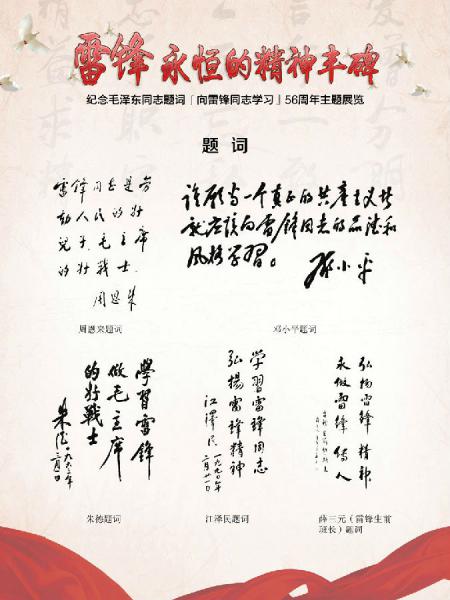 雷锋 永恒的精神丰碑
纪念毛泽东同志题词「向雷锋同志学习」56周年主题展览
题词
雷锋同志是劳
动人民的好
儿子,毛主席
的好战士.
周恩来
周恩来题词
谁愿当一个真正的共产主义者
就应该向雷锋同志的品德和
风格学习。
邓小平
邓小平题词
學習雷锋
做毛主席
的好戰士
朱德
一九六三年
朱德题词
学習雷锋同志
弘揚雷锋精神
江澤民
一九九〇年
江泽民题词
弘扬雷锋精神
永做雷锋传人
薛三元(雷锋生前
班长)题词